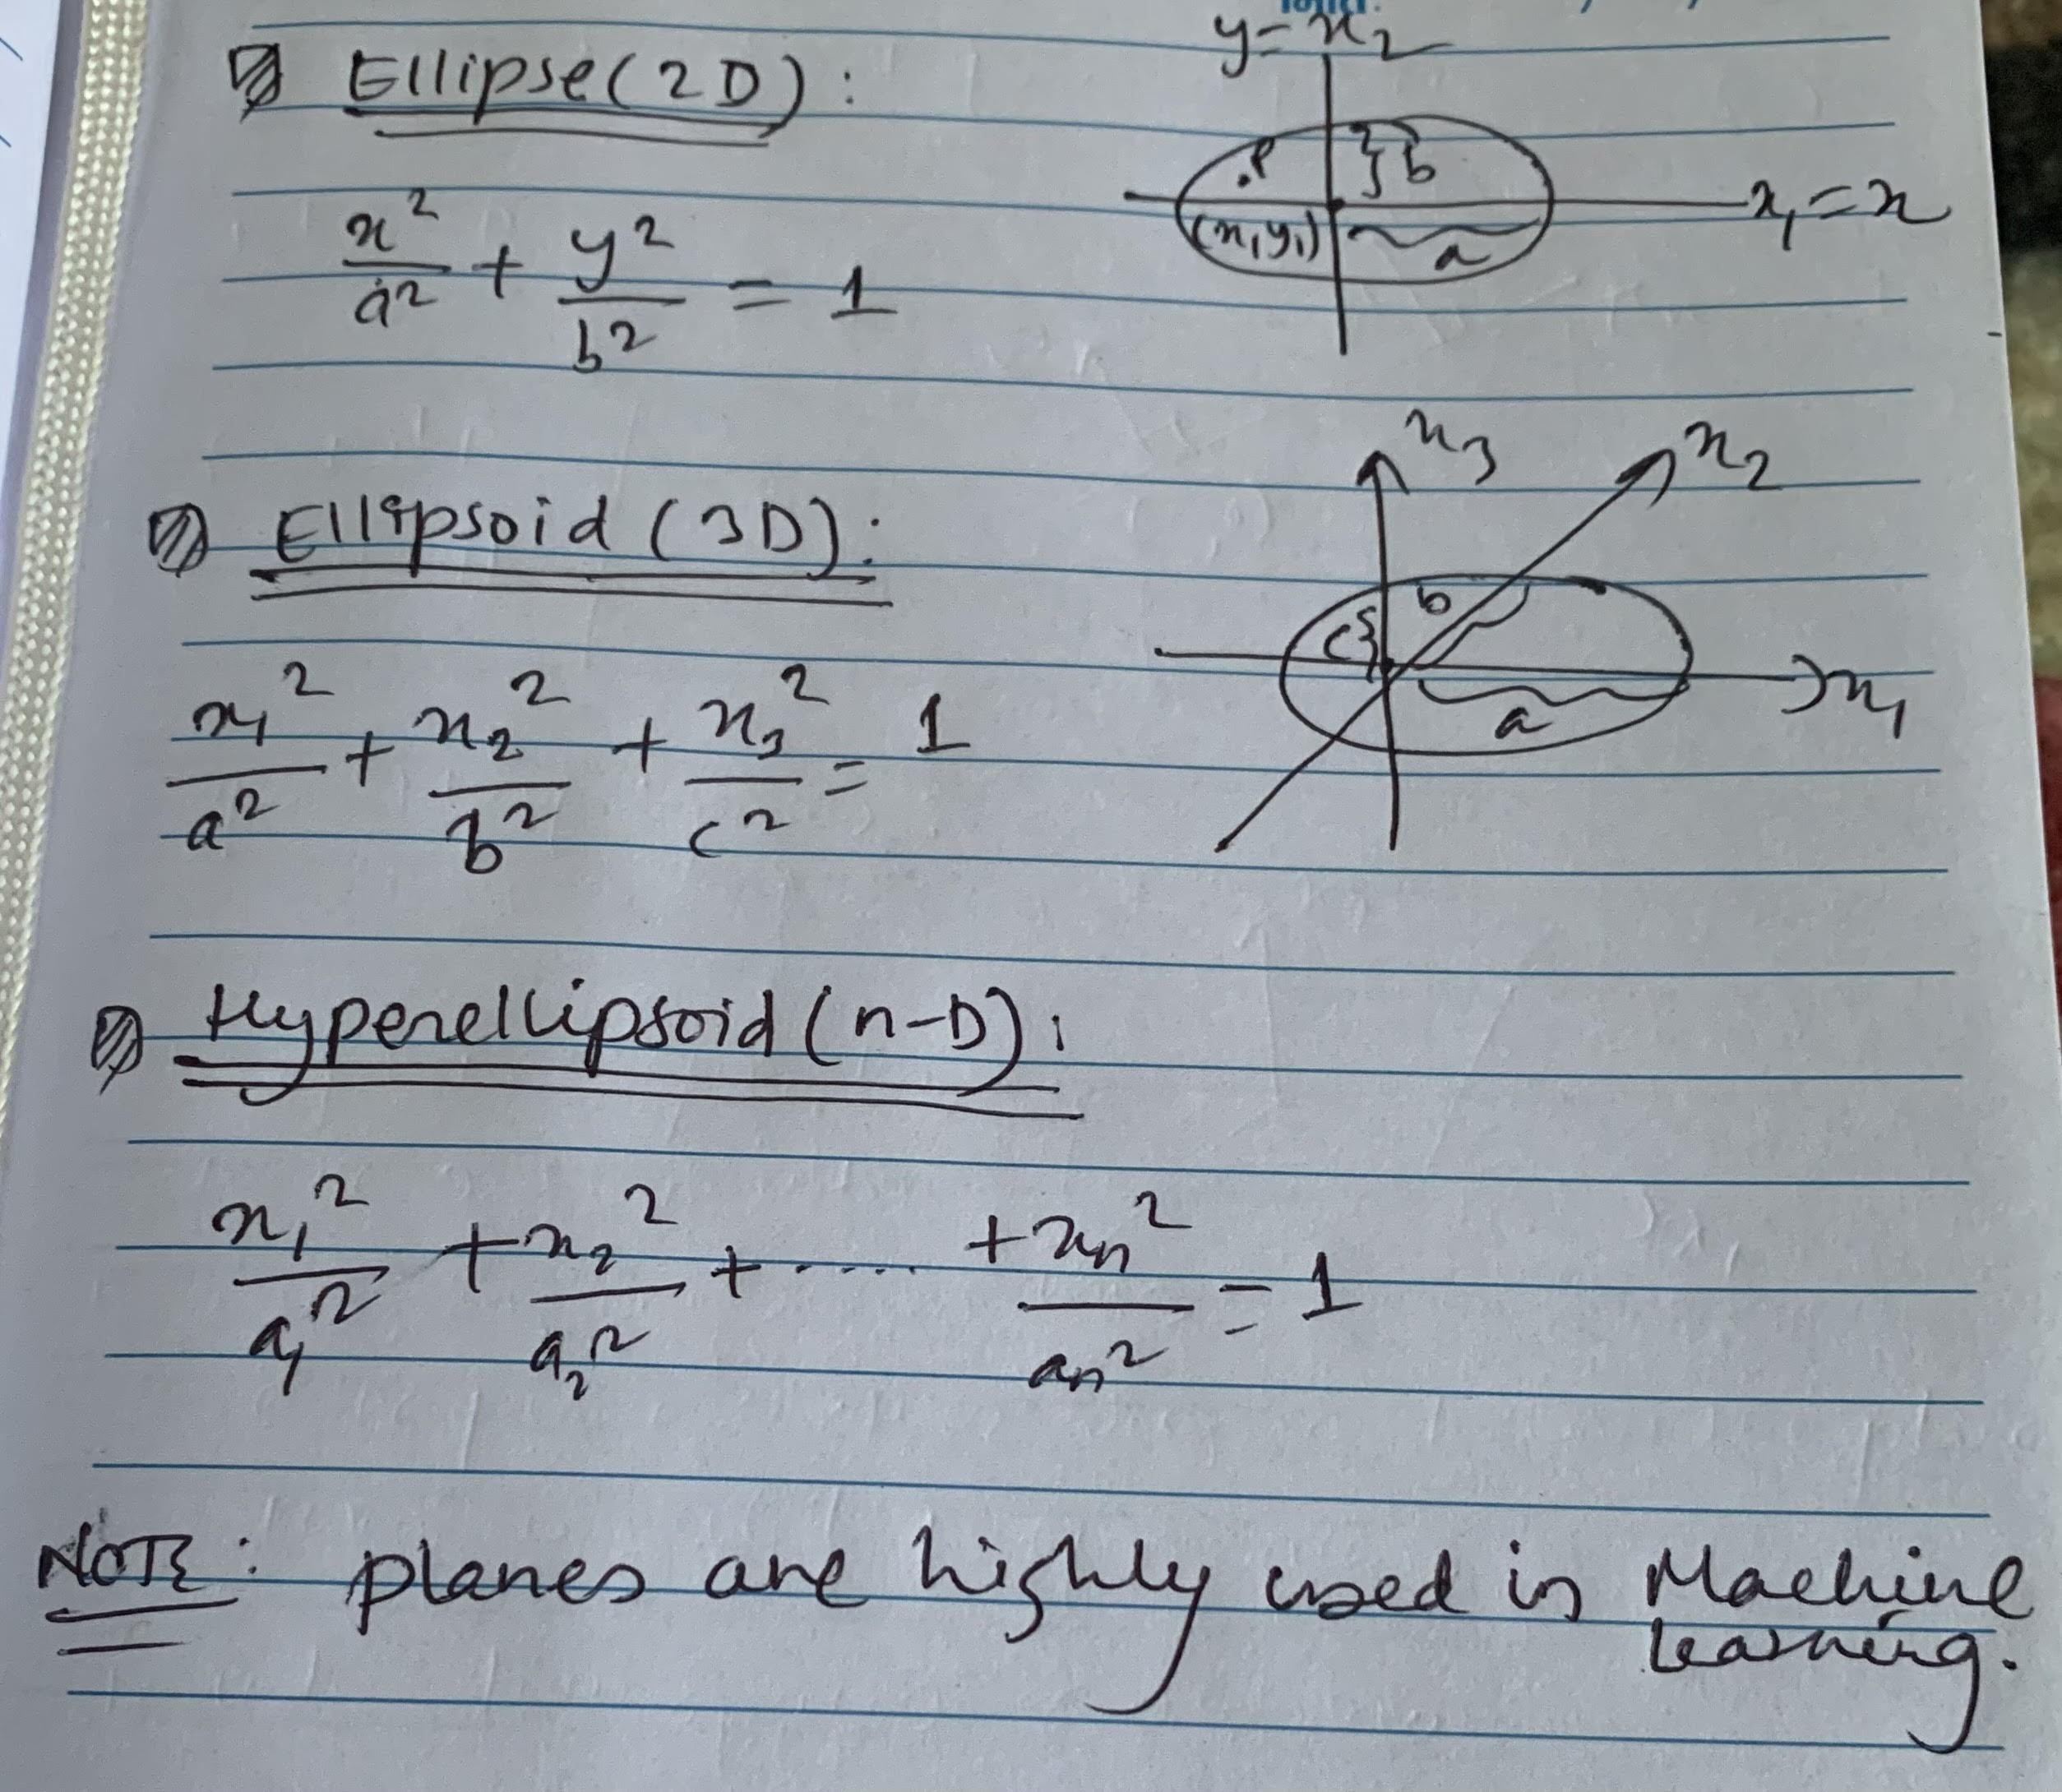 y = x₂
Ellipse (2D) :
x²/a² + y²/b² = 1
.P
} b
(x₁y₁)
a
x₁ = x
x₃
x₂
Ellipsoid (3D) :
x₁²/a² + x₂²/b² + x₃²/c² = 1
b
c {
a
x₁
Hyperellipsoid (n-D) :
x₁²/a₁² + x₂²/a₂² + ..... + xn²/an² = 1
NOTE : planes are highly used in Machine
learning.